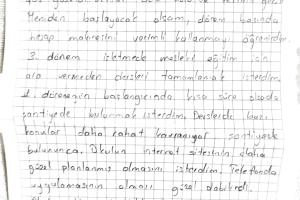 Menden başlayacak olsam, dönem başında
hesap makinesini verimli kullanmayı öğrenirdim.
3. dönem işletmede mesleki eğitim için
ara vermeden dersleri tamamlamak isterdim.
1. dönemin başlangıcında kısa süre olsada
şantiyede bulunmak isterdim. Derslerde bazı
konular daha rahat kavranıyor şantiyede
bulununca. Okulun internet sitesinin daha
güzel planlanmış olmasını isterdim. Telefonda
uygulamasının olması güzel olabilirdi.